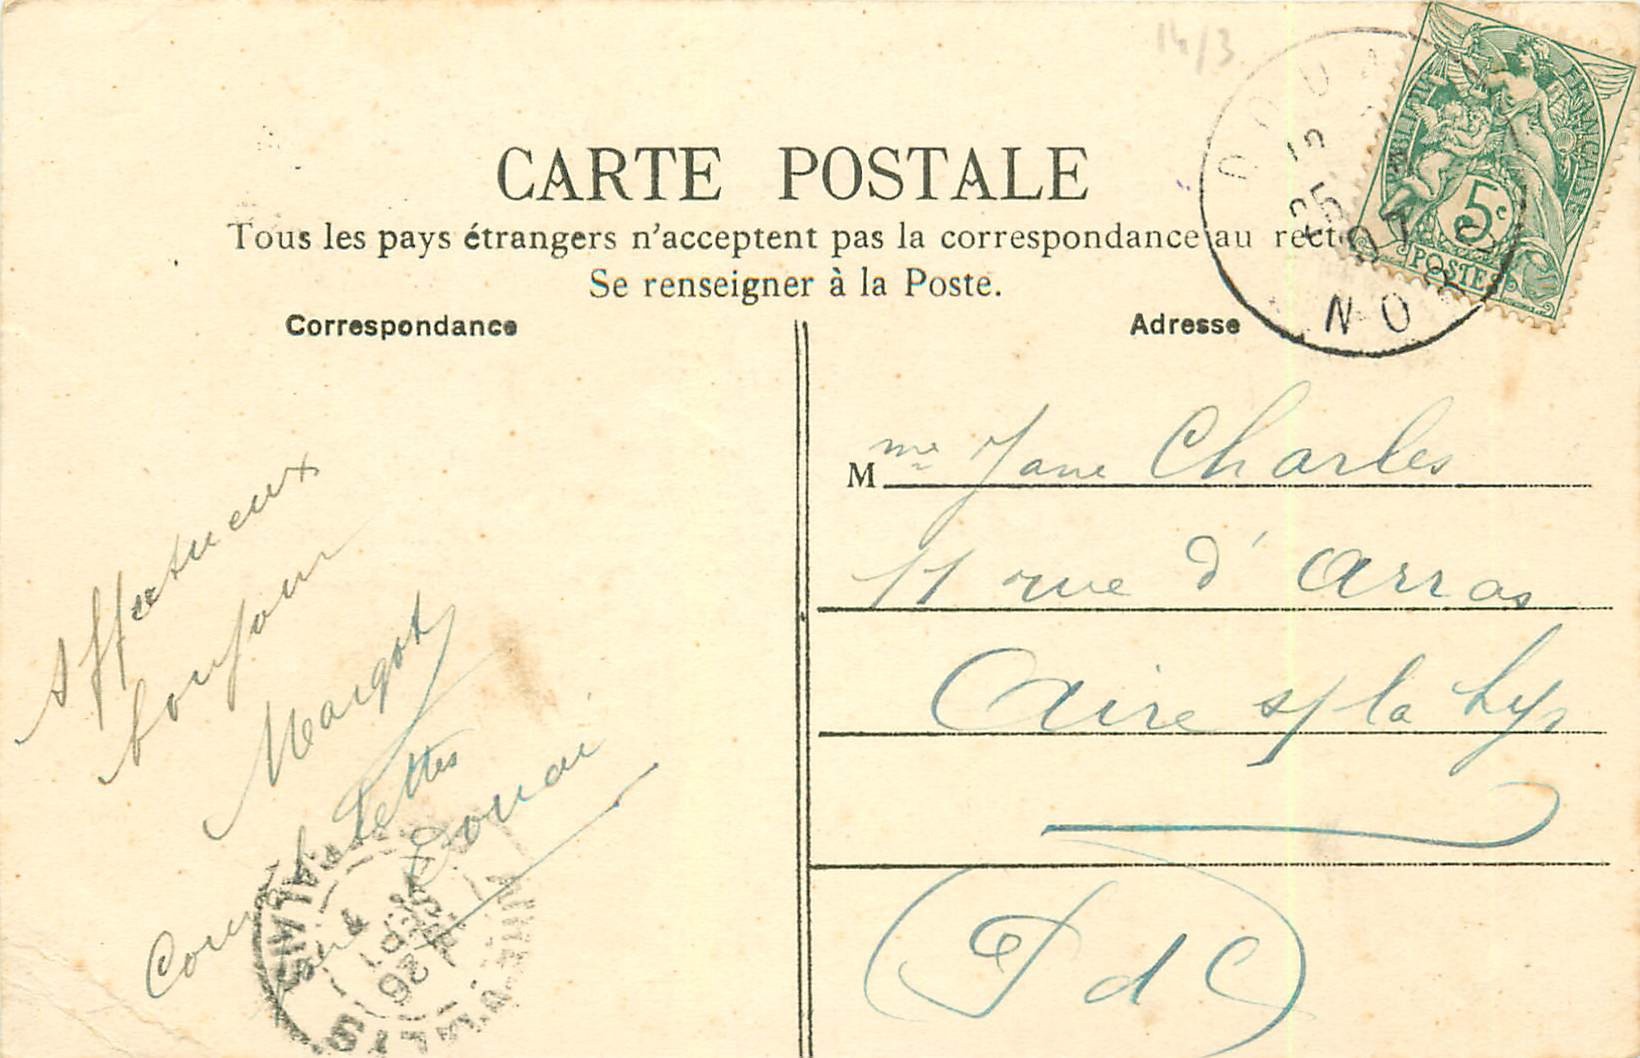 14/3
CARTE POSTALE
Tous les pays étrangers n'acceptent pas la correspondance au rect
Se renseigner à la Poste.
Correspondance
Adresse
DOUA
25
07
NO
FRANÇAISE
5c
POSTES
Affectueux
bonjour
Margot
Lettes
Douai
CALAIS
26
M me Jane Charles
11 rue d'Arras
Aire s/ la Lys
(P d C)